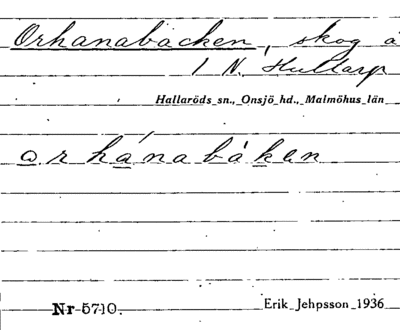 Orhanabacken, skog å
1 N. Hultarp
Hallaröds sn., Onsjö hd., Malmöhus län
orhánabåken
Nr 5710.
Erik Jehpsson 1936